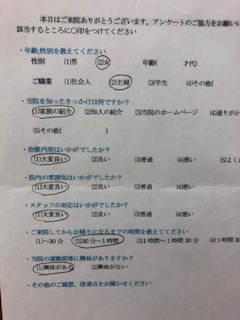 本日はご来院ありがとうございます。アンケートのご協力をお願い
該当するところに○印をつけてください
・年齢,性別を教えてください
性別 (1)男 (2)女 年齢( 才代)
ご職業 (1)社会人 (2)主婦 (3)学生 (4)その他(
・当院を知ったきっかけは何ですか?
(1)家族の紹介 (2)知人の紹介 (3)当院のホームページ (4)通りが
(5)その他(
・治療内容はいかがでしたか?
(1)大変良い (2)良い (3)普通 (4)悪い (5)よく
・院内の雰囲気はいかがでしたか?
(1)大変良い (2)良い (3)普通 (4)悪い
・スタッフの対応はいかがでしたか?
(1)大変良い (2)良い (3)普通 (4)悪い
・ご来院してからお帰りになるまでの時間を教えてください
(1)~30分 (2)30分~1時間 (3)1時間~1時間30分 (4)1時間30
・当院の運動指導に興味がありますか?
(1)興味がある (2)興味がない
・その他のご感想、改善点をお聞かせください